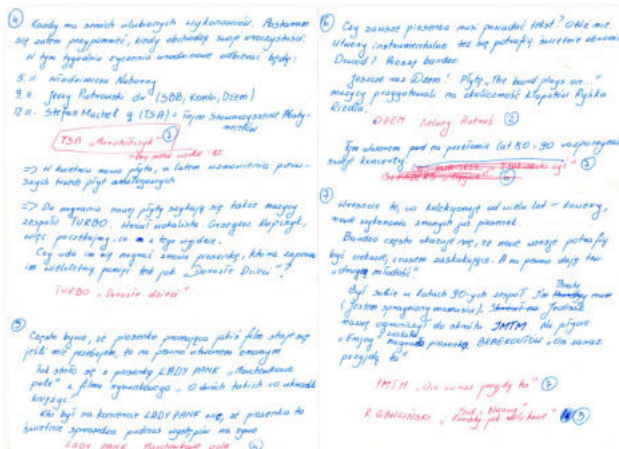 ④
Każdy ma swoich ulubionych wykonawców. Postaram
się zatem przypomnieć, kiedy obchodzą swoje uroczystości.
W tym tygodniu życzenia urodzinowe odbierać będą:
5.11 Włodzimierz Nahorny
9.11 Jerzy Piotrowski dr (SBB, Kombi, Dżem)
12.11. Stefan Machel g (TSA) = Tajne Stowarzyszenie
TSA „Maratończyk”
=> W kwietniu nowa płyta, a latem wznowienia pierw-
szych trzech płyt analogowych
=> Do nagrania nowej płyty szykują się także muzycy
zespołu TURBO. Wrócił wokalista Grzegorz Kupczyk,
więc poczekajmy, co z tego wyjdzie.
Czy uda im się nagrać znowu piosenkę, która zapewni
im wieloletnią pamięć tak jak „Dorosłe Dzieci”?
TURBO „Dorosłe dzieci”
⑤
Często bywa, że piosenka promująca jakiś film staje się
jeśli nie przebojem, to na pewno utworem znanym
Tak stało się z piosenką LADY PANK „Marchewkowe
pole” z filmu rysunkowego „O dwóch takich co ukradli
księżyc”.
Kto był na koncercie LADY PANK wie, że piosenka ta
świetnie sprawdza podczas występów na żywo
LADY PANK „Marchewkowe pole”
⑥
Czy zawsze piosenka musi posiadać tekst? Otóż nie
utwory instrumentalne też się potrafią świetnie obronić
Dowód? Proszę bardzo
Jeszcze raz Dżem! Płytę „The band plays on...”
muzycy przygotowali na okoliczność kłopotów Ryśka
Riedla.
DŻEM Zielony Piotruś
Tym utworem pod na przełomie lat 80 i 90 rozpoczynali
swoje koncerty.
⑦
Wreszcie to, co kolekcjonuję od wielu lat – kowery,
nowe wykonania znanych już piosenek.
Bardzo często okazuje się, że nowe wersje potrafią
być ciekawe, czasem zaskakujące. A na pewno dają tzw
„drugą młodość”
Był sobie w latach 90-tych zespół I'm
(jestem spragniony mamusiu).
nazwę ograniczyli do skrótu IMTM Na płycie
„Enjoy” piosenka BREAKOUTÓW „Oni zaraz
przyjdą tu”
IMTM „Oni zaraz przyjdą tu” ⑦
R. GAWLIŃSKI